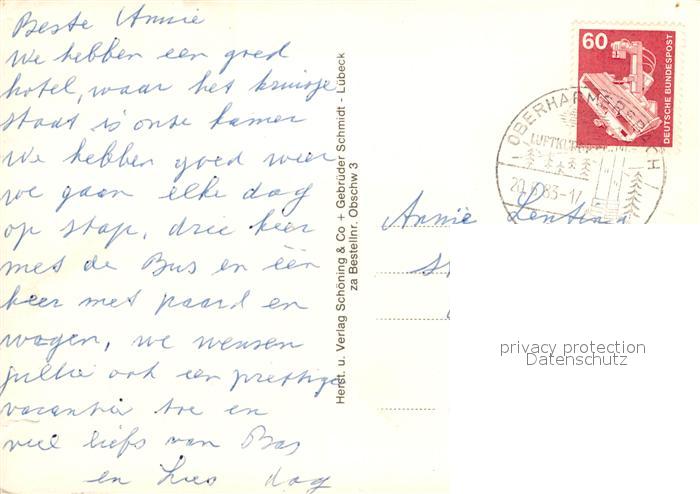 Beste Annie
We hebben een goed
hotel, waar het kruisje
staat is onze kamer
We hebben goed weer
we gaan elke dag
op stap, drie keer
met de Bus en één
keer met paard en
wagen, we wensen
jullie ook een prettige
vacantie toe en
veel liefs van Bas
en Lies dag
Herst. u. Verlag Schöning & Co + Gebrüder Schmidt - Lübeck
za Bestellnr. Obschw 3
60
DEUTSCHE BUNDESPOST
OBERHARMERSBACH
LUFTKUR
83-17
Annie
privacy protection
Datenschutz